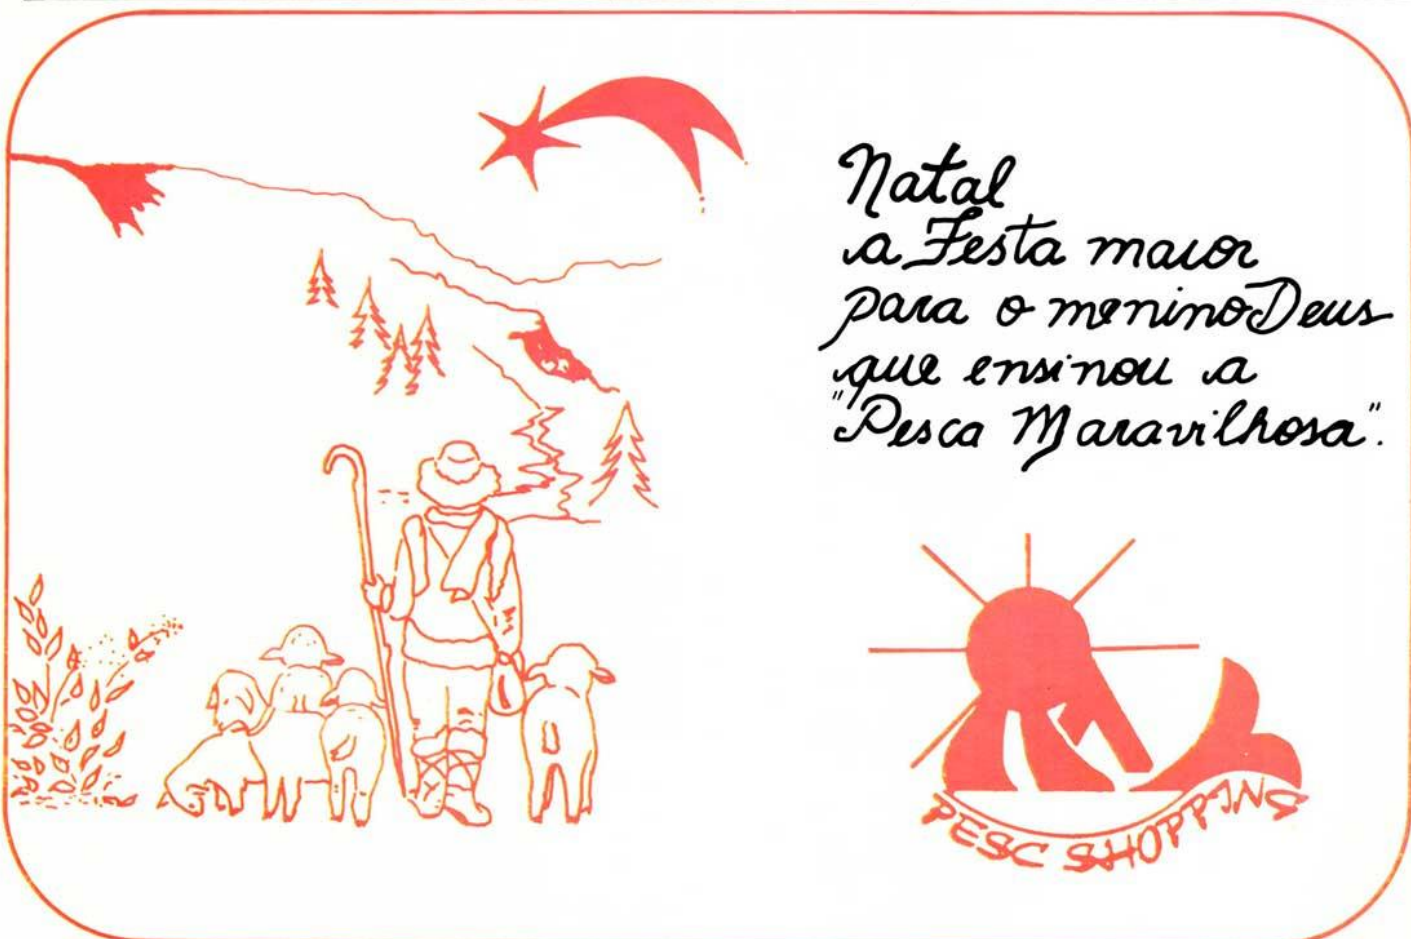 Natal
a Festa maior
para o menino Deus
que ensinou a
"Pesca Maravilhosa".
PESC SHOPPING